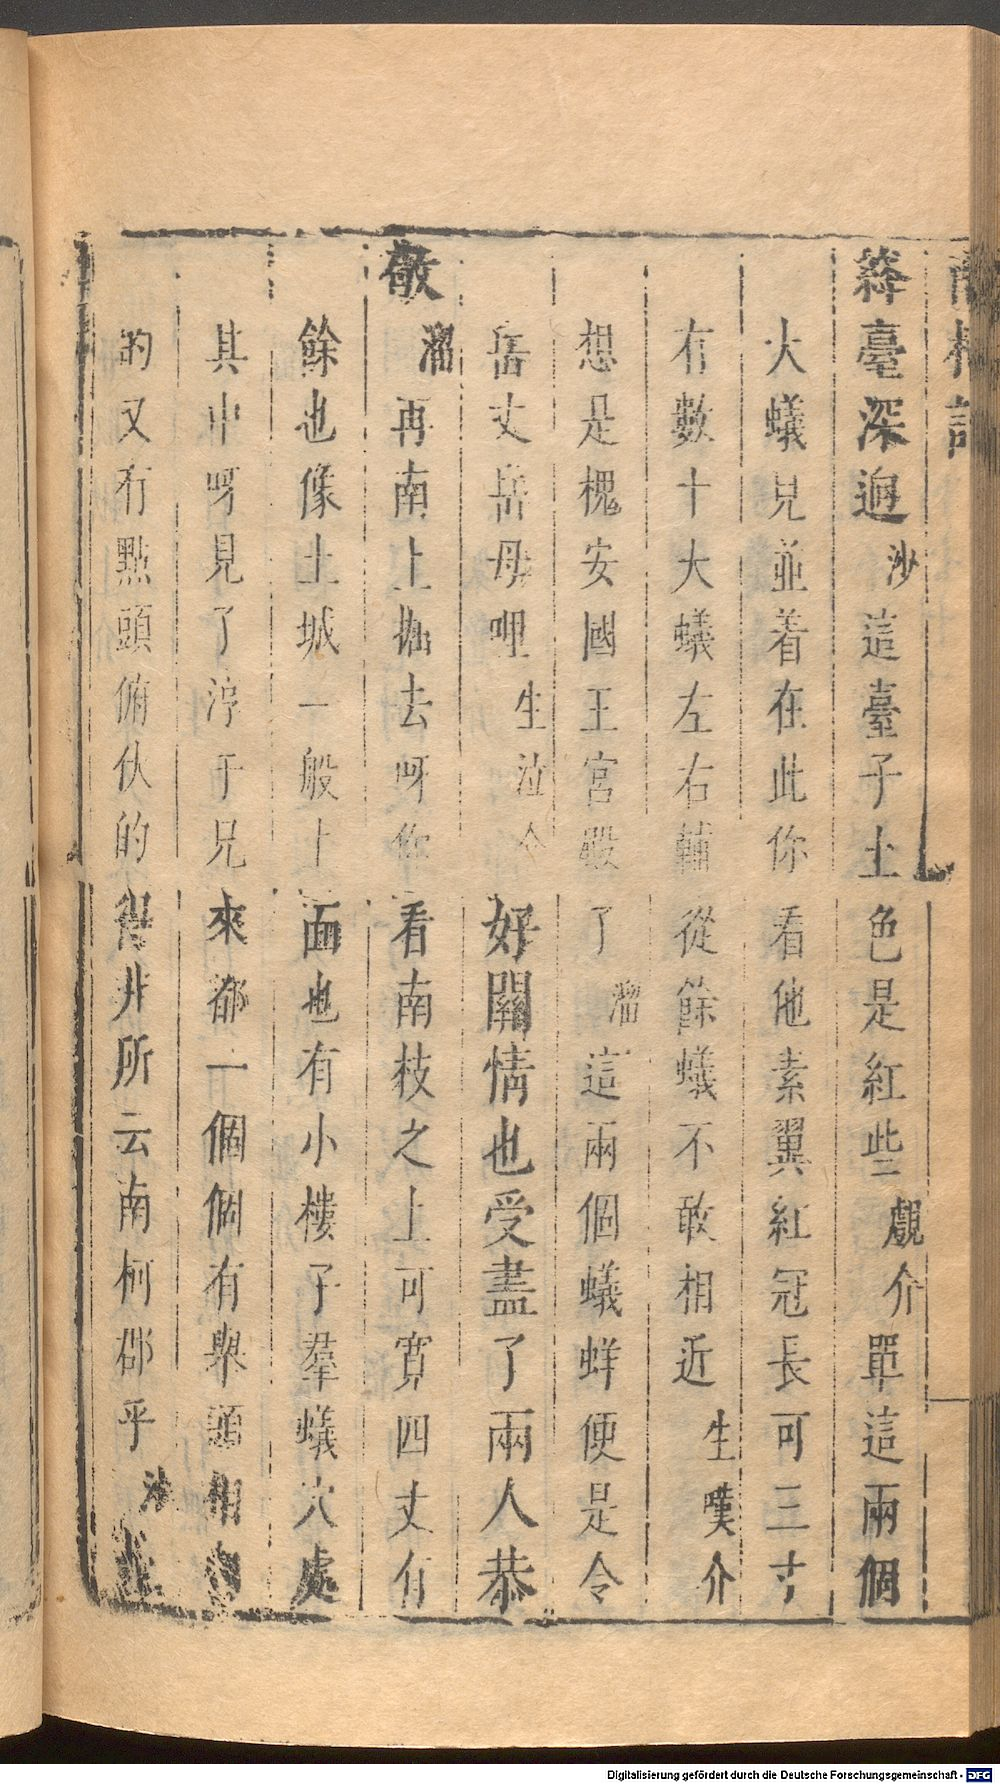 南柯記
絳臺深迥沙這臺子土色是紅些覷介單這兩個
大蟻兒並着在此你看他素翼紅冠長可三寸
有數十大蟻左右輔從餘蟻不敢相近生嘆介
想是槐安國王宮殿了溜這兩個蟻蛘便是令
岳丈岳母哩生泣介好關情也受盡了兩人恭
敬
溜再南上掘去呀你看南枝之上可寬四丈有
餘也像土城一般上面也有小樓子羣蟻穴處
其中呀見了淳于兄來都一個個有舉頭相向
的又有點頭俯伏的得非所云南柯郡乎沙
Digitalisierung gefördert durch die Deutsche Forschungsgemeinschaft - DFG